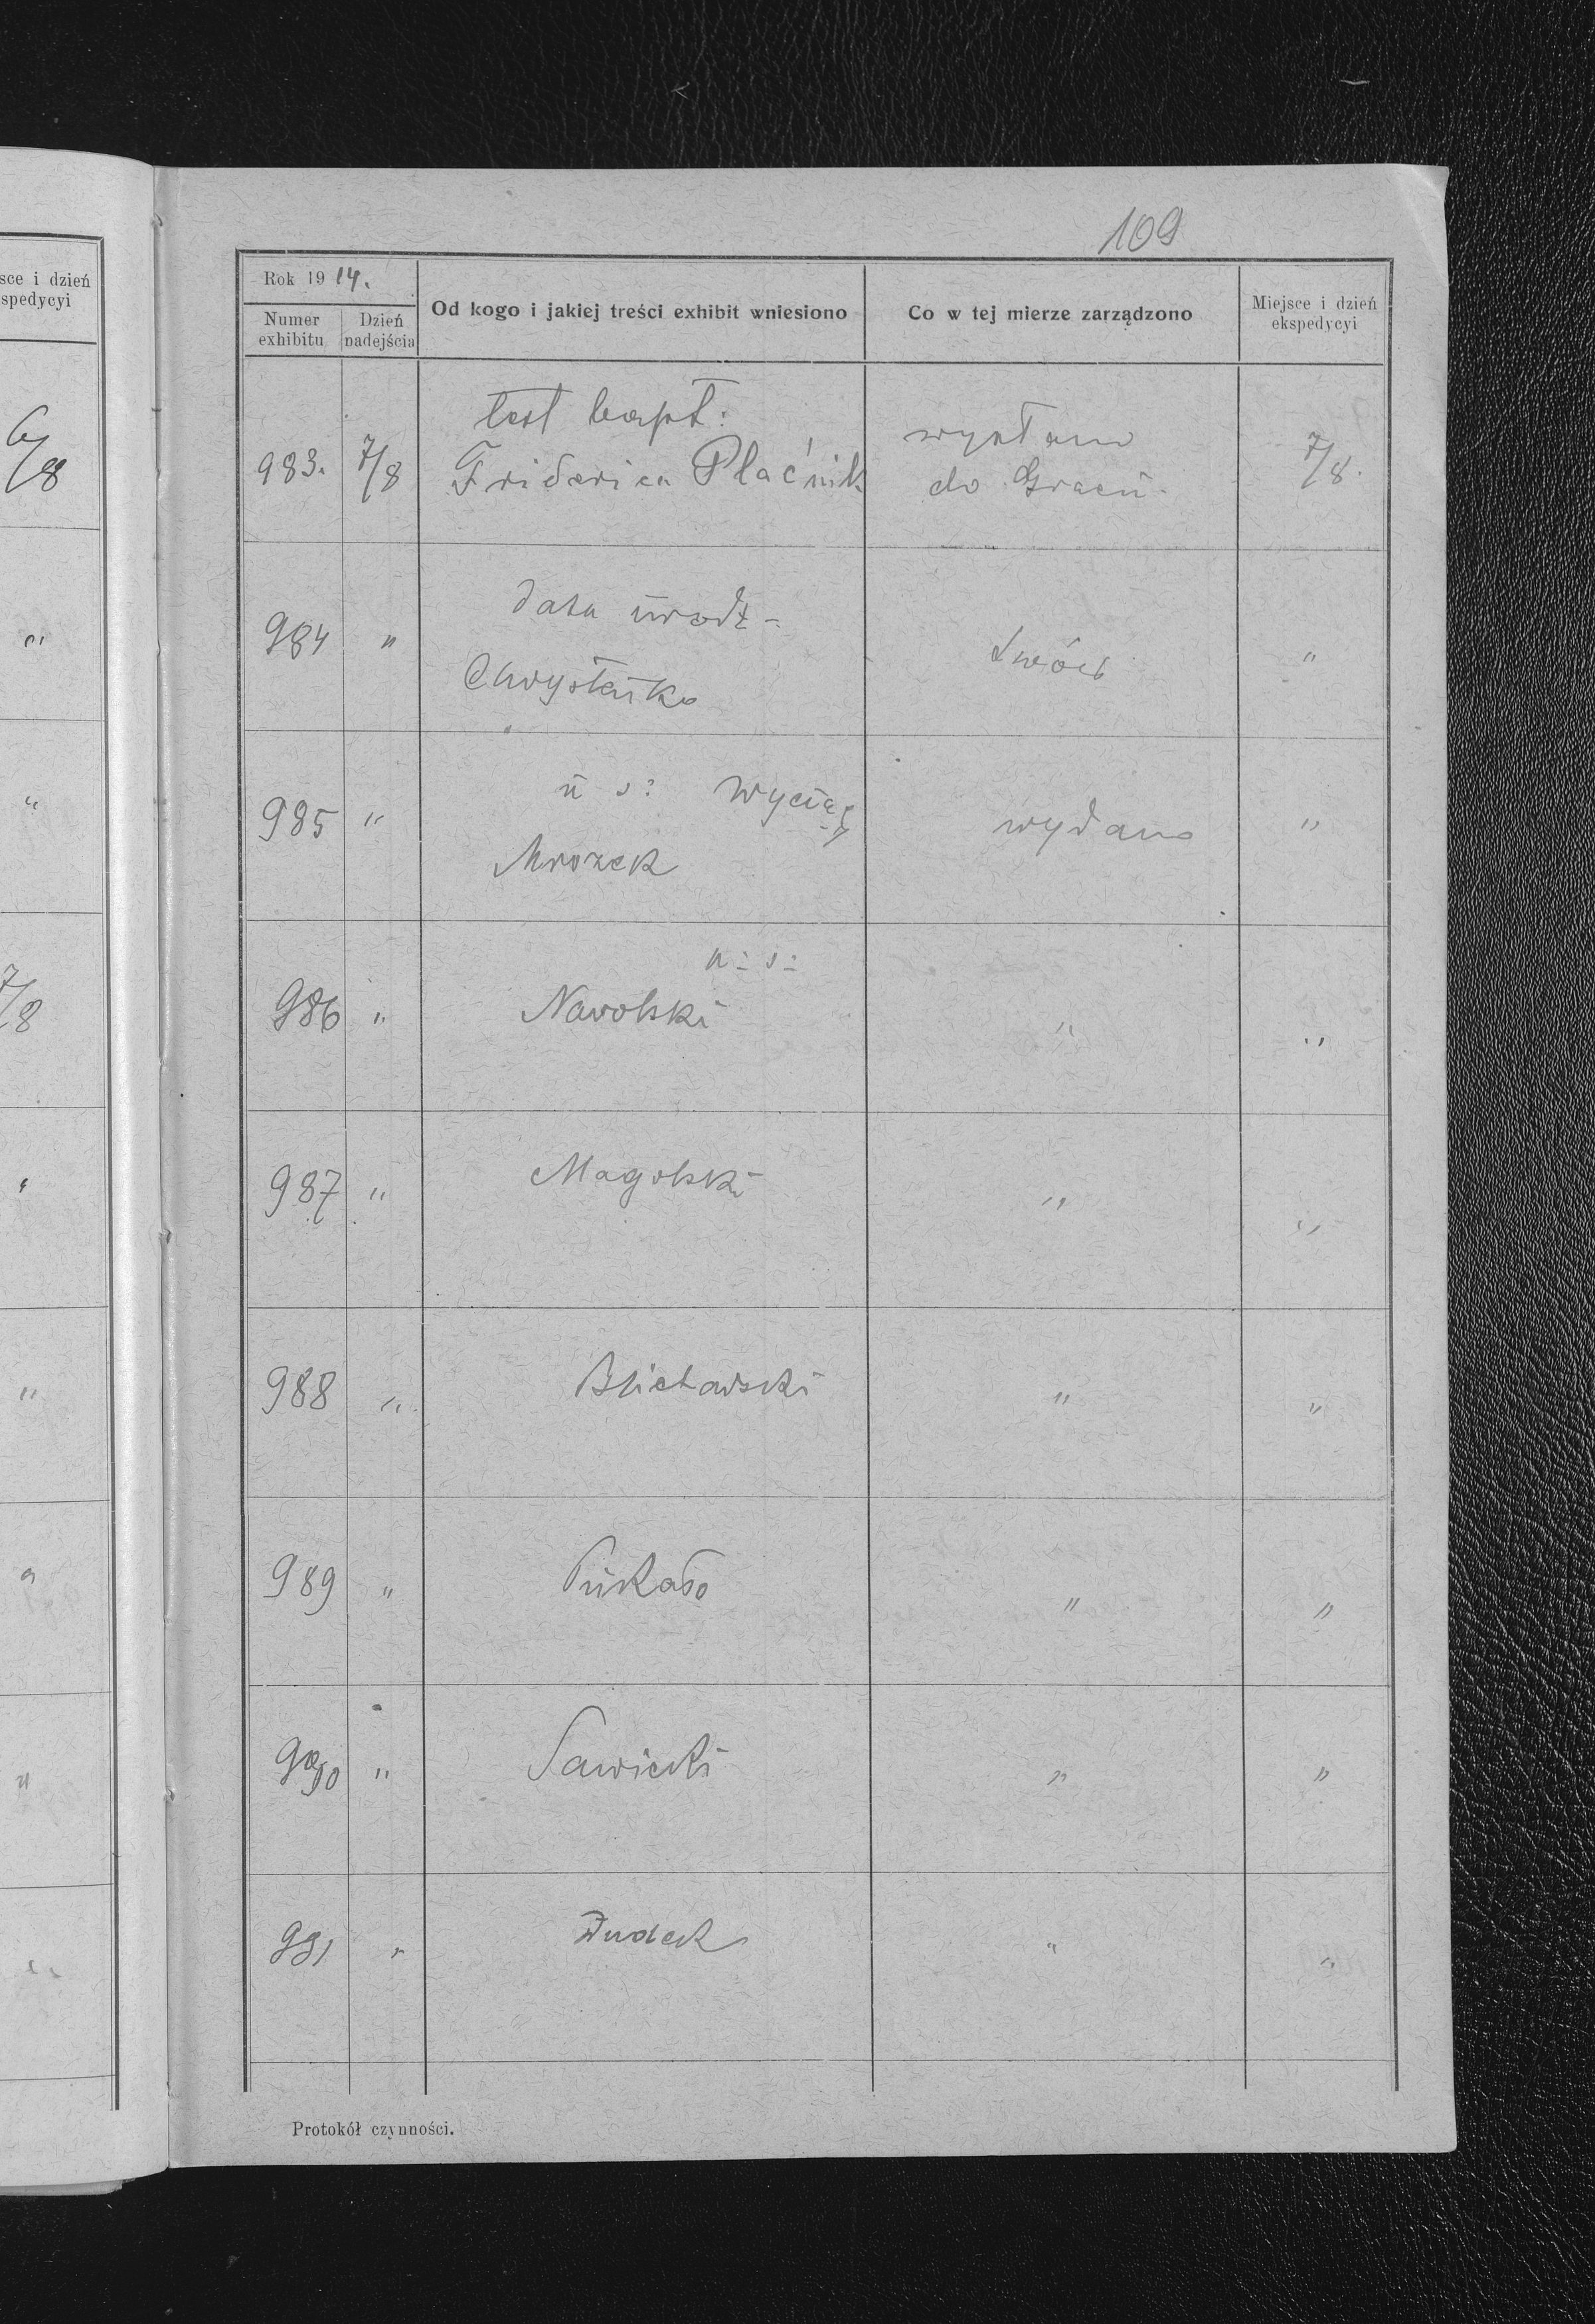 sce i dzień
spedycyi
6/8
"
"
7/8
"
"
"
"
"
109
Rok 19 14.
Numer exhibitu
Dzień nadejścia
Od kogo i jakiej treści exhibit wniesiono
Co w tej mierze zarządzono
Miejsce i dzień ekspedycyi
test bapt:
983. 7/8 Friderica Płaćnik wysłano do 7/8.
data urodz-
984 " Lwów "
985 " u s: wyciąg
Mrozek wydano "
n: s:
986 " Nawolski " "
987 " Magolski " "
988 " " "
989 " Pukało " "
990 " Sawicki " "
991 " Dudek " "
Protokół czynności.